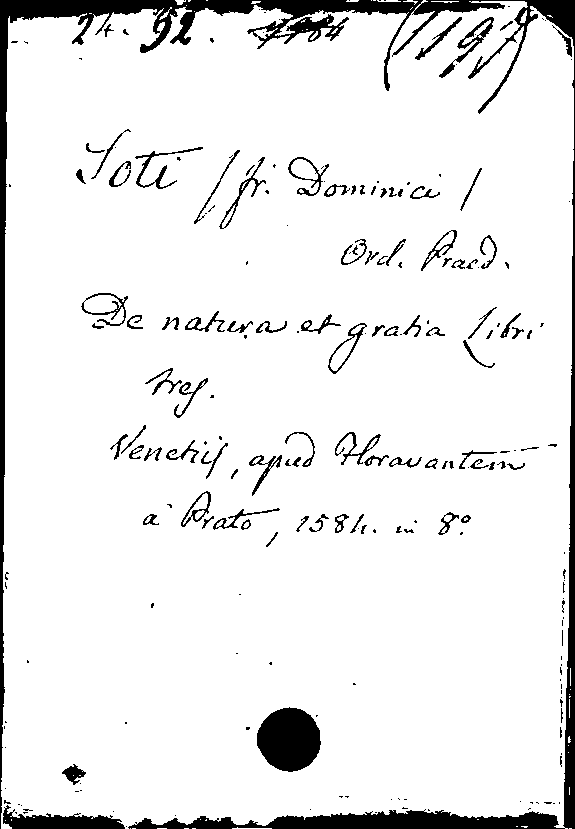 24. 92. (1197)
Soti /fr. Dominici /
Ord. Praed.
De natura et gratia Libri
tres.
Venetiis, apud Floravantem
a Prato, 1584. in 8º